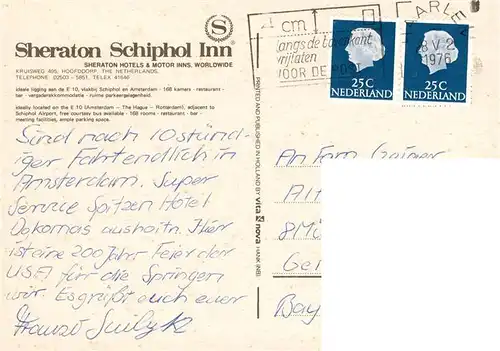 Sheraton Schiphol Inn
SHERATON HOTELS & MOTOR INNS, WORLDWIDE
KRUISWEG 495, HOOFDDORP, THE NETHERLANDS,
TELEPHONE 02503 - 5851, TELEX 41646
ideale ligging aan de E 10, vlakbij Schiphol en Amsterdam - 168 kamers - restaurant -
bar - vergaderakkommodatie - ruime parkeergelegenheid.
ideally located on the E 10 (Amsterdam — The Hague — Rotterdam), adjacent to
Schiphol Airport, free courtesy bus available - 168 rooms - restaurant - bar -
meeting facilities, ample parking space.
Sind nach 10stünd-
iger Fahrt endlich in
Amsterdam. Super
Service Spitzen Hotel
aushalten. Hier
ist eine 200 Jahr Feier der
USA für die Springen
wir. Es grüßt euch euer
Franz
PRINTED AND PUBLISHED IN HOLLAND BY vita nova HANK (NB)
cm
langs de bovenkant
vrijlaten
VOOR DE
HAARLEM
V
1976
25 C
NEDERLAND
25 C
NEDERLAND
An Fam.
Alt
8 Mü
Ge
Bay